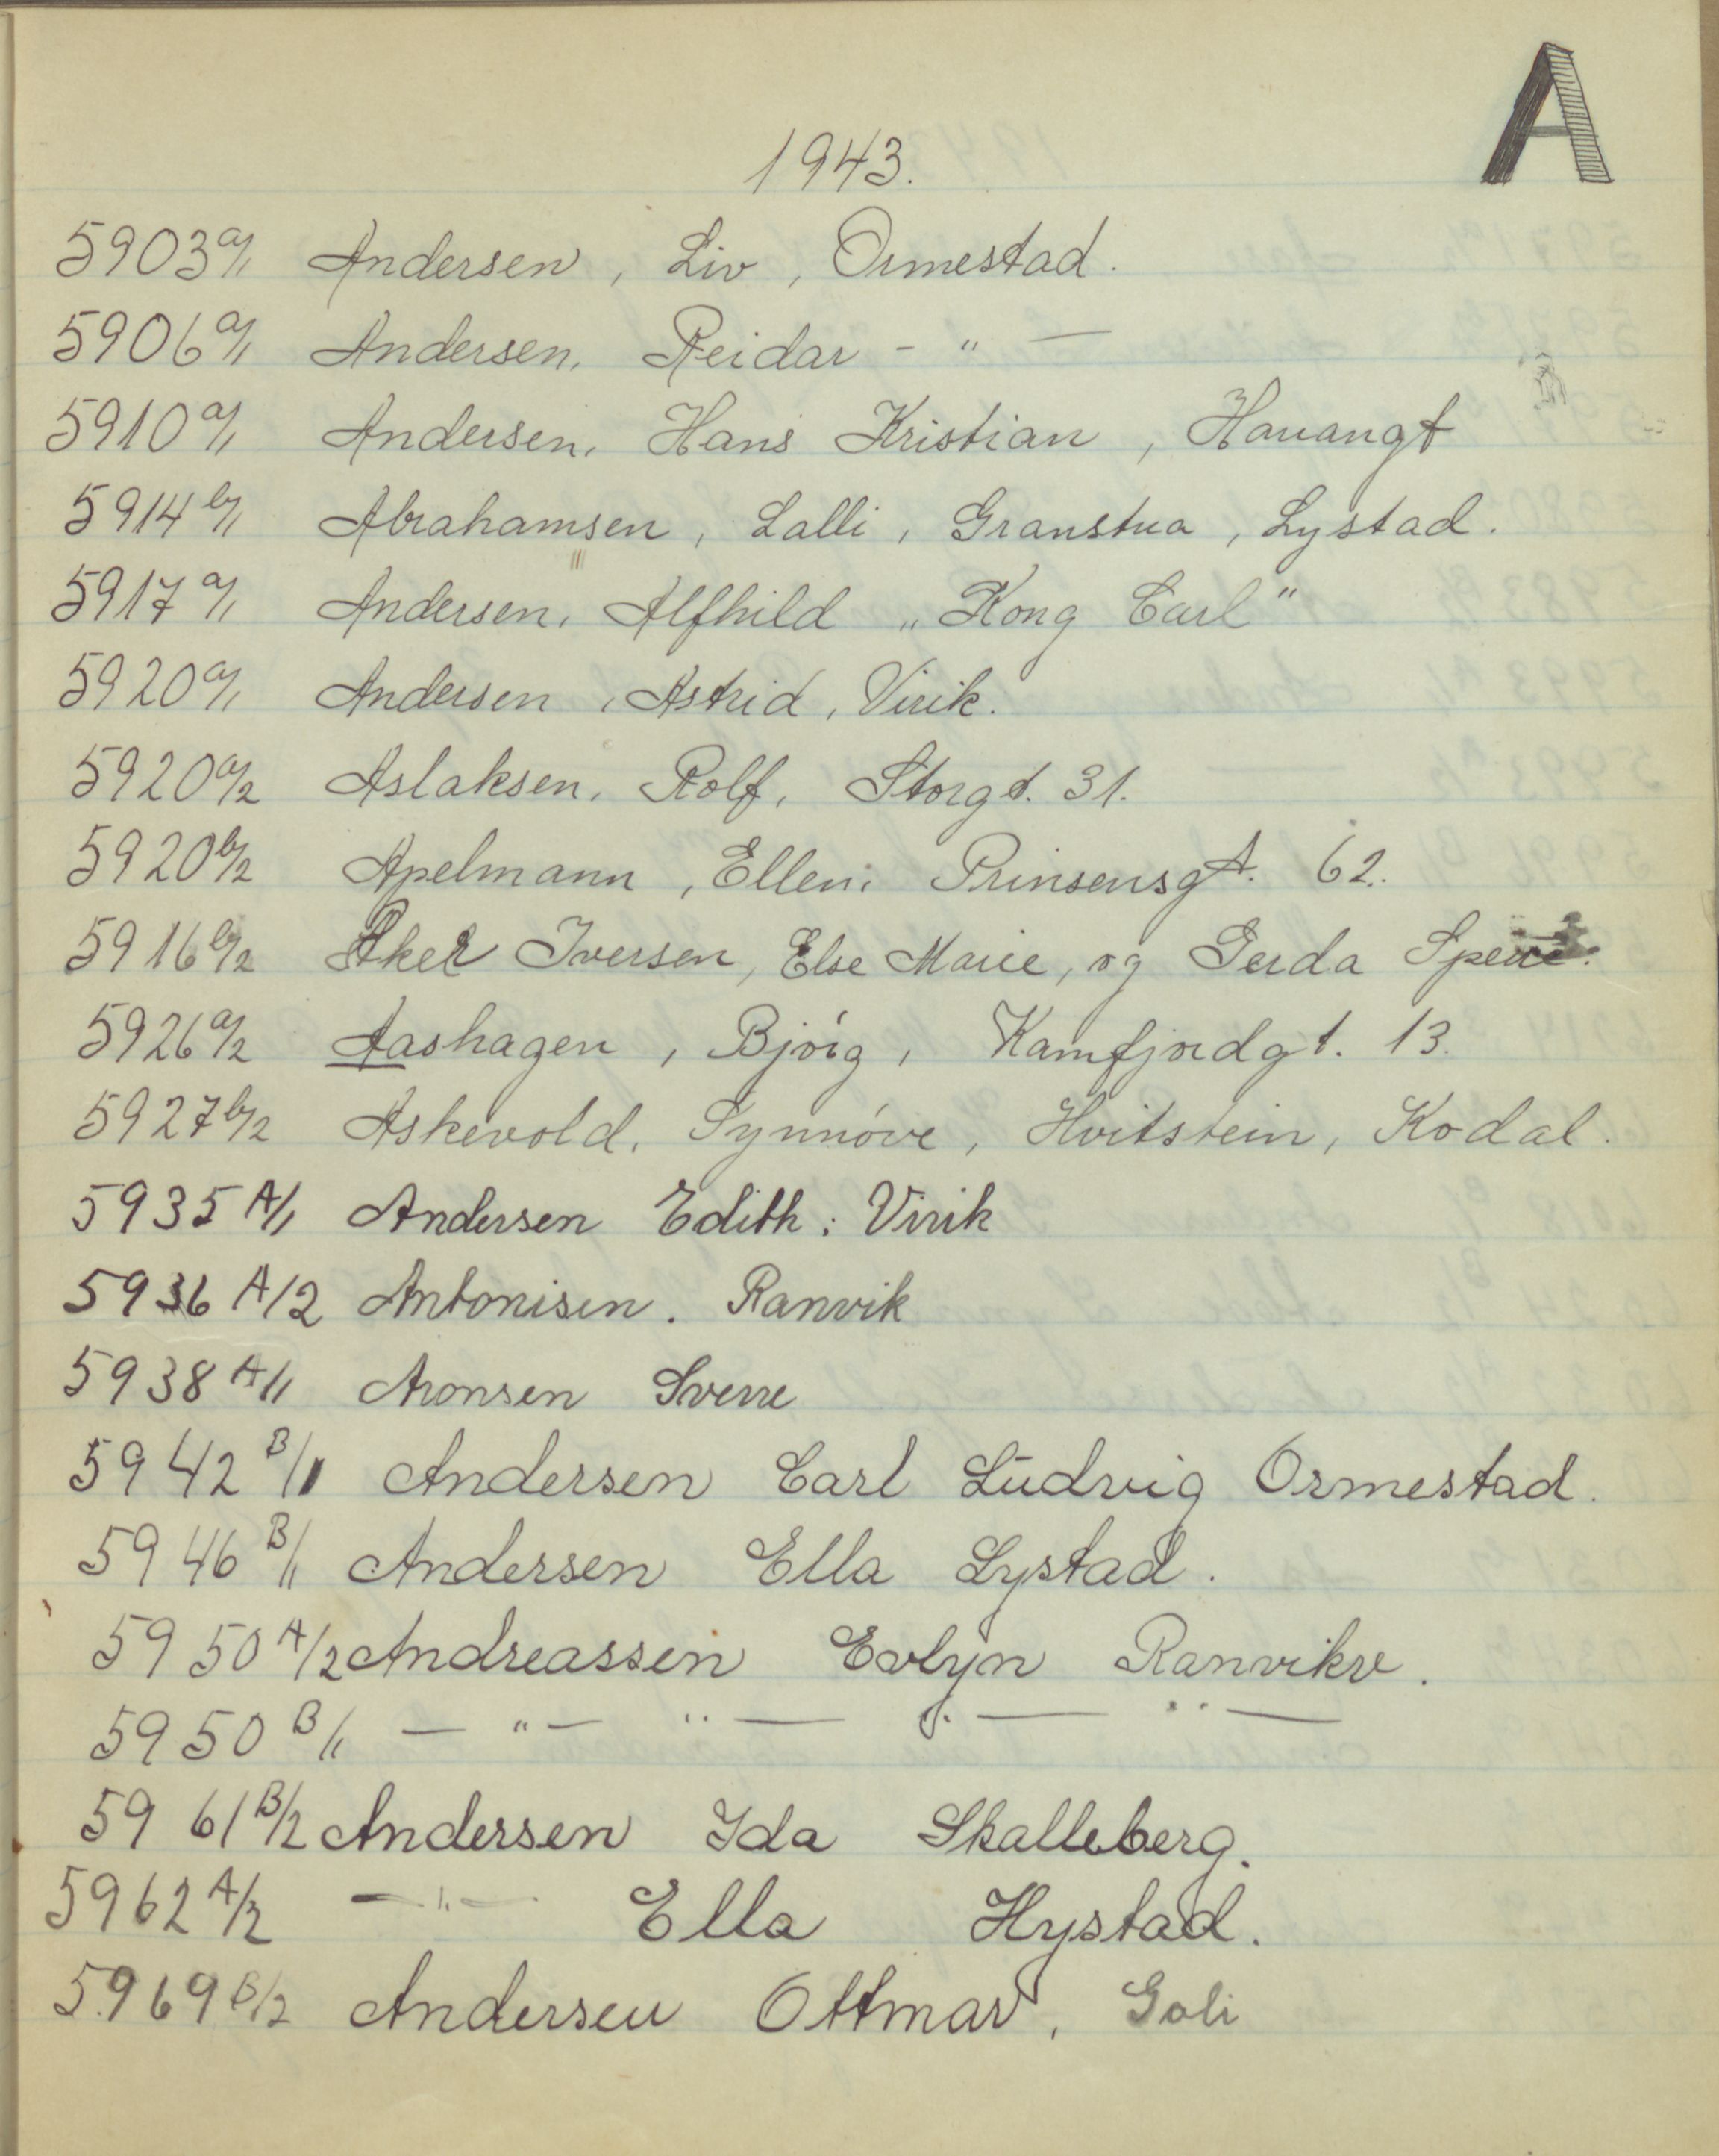 A
1943.
5903 a/1 Andersen, Liv, Ormestad.
5906 a/1 Andersen, Reidar - " -
5910 a/1 Andersen, Hans Kristian, Havangt
5914 b/1 Abrahamsen, Lalli, Granstua, Lystad.
5917 a/1 Andersen, Alfhild „Kong Carl"
5920 a/1 Andersen, Astrid, Virik.
5920 a/2 Aslaksen, Rolf, Storgt. 31.
5920 b/2 Apelmann, Ellen, Prinsensgt. 62.
5916 b/2 Aker Iversen, Else Marie, og Gerda
5926 a/2 Aashagen, Bjórg, Kamfjordgt. 13.
5927 b/2 Askevold, Synnóve, Hvitstein, Kodal.
5935 A/1 Andersen Edith: Virik
5936 A/2 Antonisen. Ranvik
5938 A/1 Aronsen Sverre
5942 B/1 Andersen Carl Ludvig Ormestad.
5946 B/1 Andersen Ella Lystad.
5950 A/2 Andreassen Evlyn Ranvikv.
5950 B/1 - " - " - " - " -
5961 B/2 Andersen Ida Skalleberg.
5962 A/2 - " - Ella Hystad.
5969 B/2 Andersen Ottmar, Goli